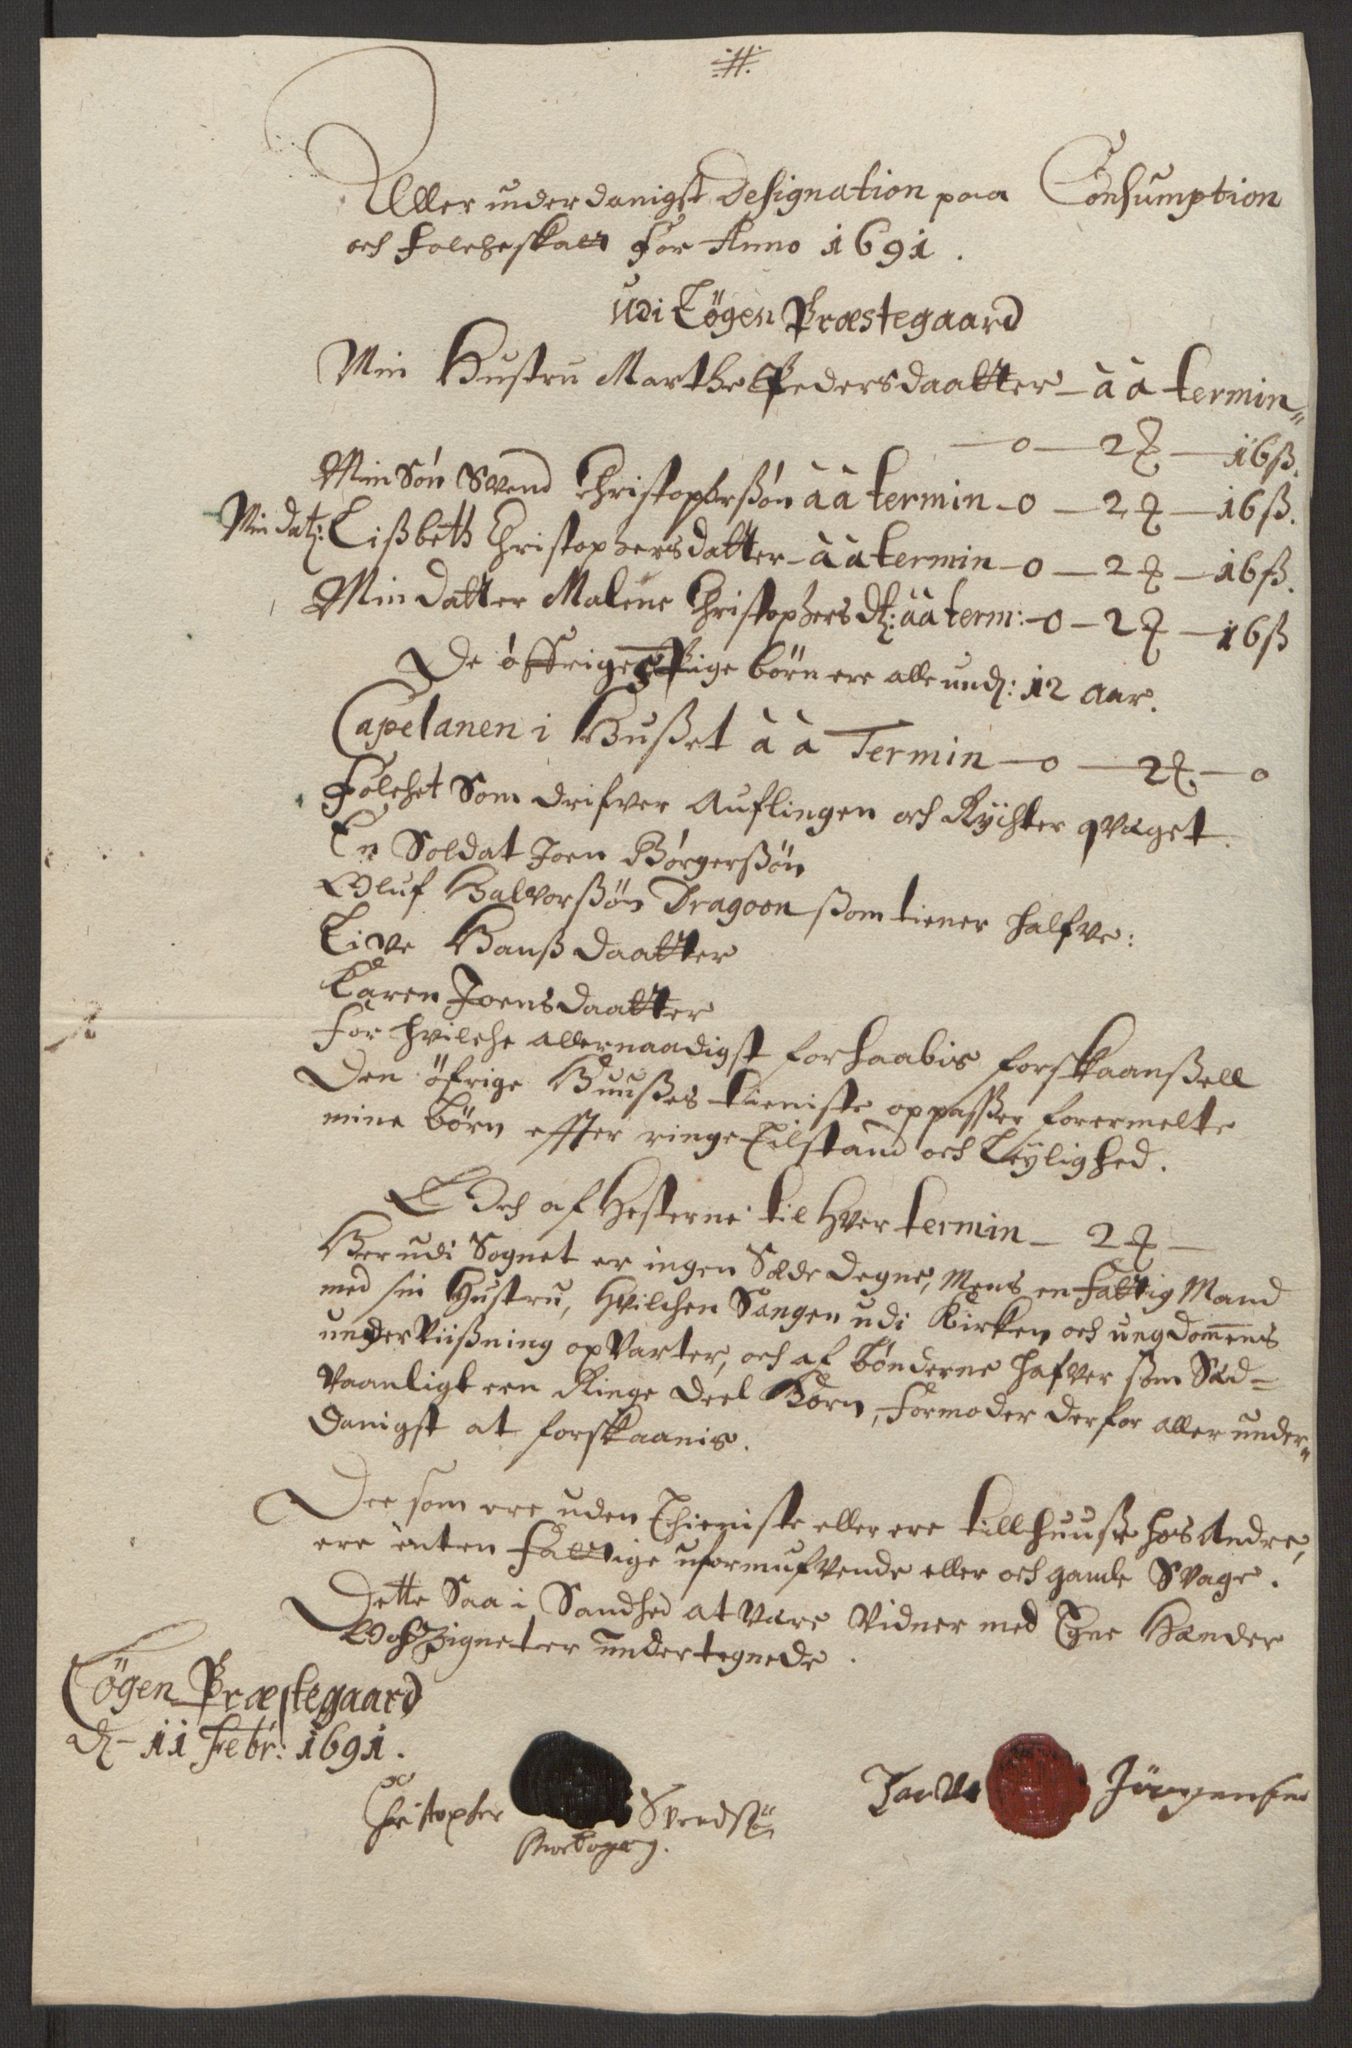 Aller underdanigst Designation paa Consumption
och folcheskatt for Anno 1691.
Udi Løgen Præstegaard
Min Hustru Marthe Pedersdaatter – à à termin
– 0 – 2 – 16 ß.
Min Søn Svend Christophersøn à à termin – 0 – 2 – 16 ß.
Min dat: Lißbeth Christophersdatter – à à termin – 0 – 2 – 16 ß.
Min datter Malene Christophers dt: à à term: – 0 – 2 – 16 ß
De øffrige Pige børn ere alle und: 12 aar.
Capelanen i Hußet à à Termin – 0 – 2 – 0
Folchet Som drifver Auflingen och Rychter qvæget
En Soldat Joen Børgerßøn
Oluf Halvorßøn Dragoon ßom tiener halfve:
Live Hanßdaatter
Karen Joensdaatter
for hvilche allernaadigst forhaabis forskaanßell
Den øfrige Huußes tieniste oppasser forermelte
mine børn effter ringe Tilstand och Leylighed.
Och af Hesterne til hver termin – 2 –
Her udi Sognet er ingen Sæde Degne, Mens en fattig Mand
med sin Hustru, Hvilchen Sangen udi Kirken och ungdommens
underViißning opVarter, och af bønderne hafver som Sæd=
Vaanligt een Ringe Deel Korn, formoder derfor aller under
danigst at forskaanis.
Dee som ere uden Thieniste eller ere till huuse hos Andre,
ere enten fattige uformufvende eller och gamle Svage.
Dette Saa i Sandhed at være Vidner med Egne Hænder
Och Zigneter undertegnede.
Løgen Præstegaard
d – 11 Febr: 1691.
Christopher Svendsøn
Jørgensen